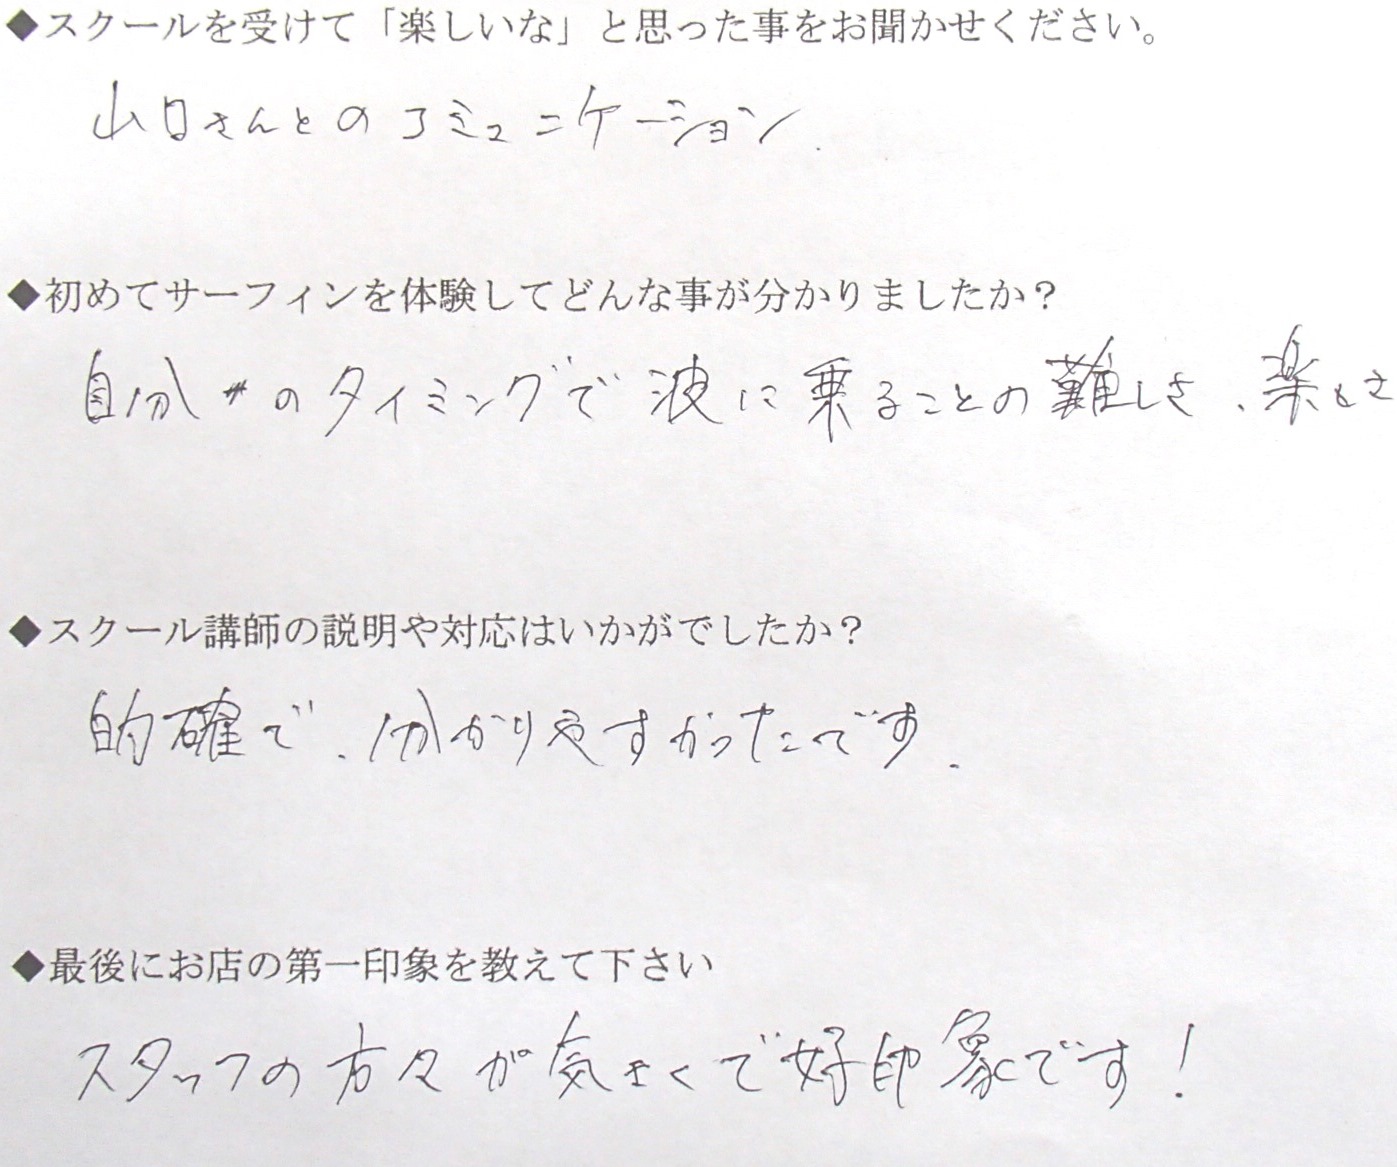 ◆スクールを受けて「楽しいな」と思った事をお聞かせください。
山口さんとのコミュニケーション.
◆初めてサーフィンを体験してどんな事が分かりましたか？
自分のタイミングで波に乗ることの難しさ、楽しさ
◆スクール講師の説明や対応はいかがでしたか？
的確で、分かりやすかったです.
◆最後にお店の第一印象を教えて下さい
スタッフの方々が気さくで好印象です！